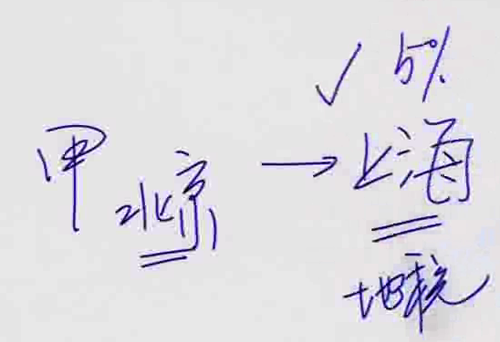 ✓ 5%
甲 北京 → 上海
地税